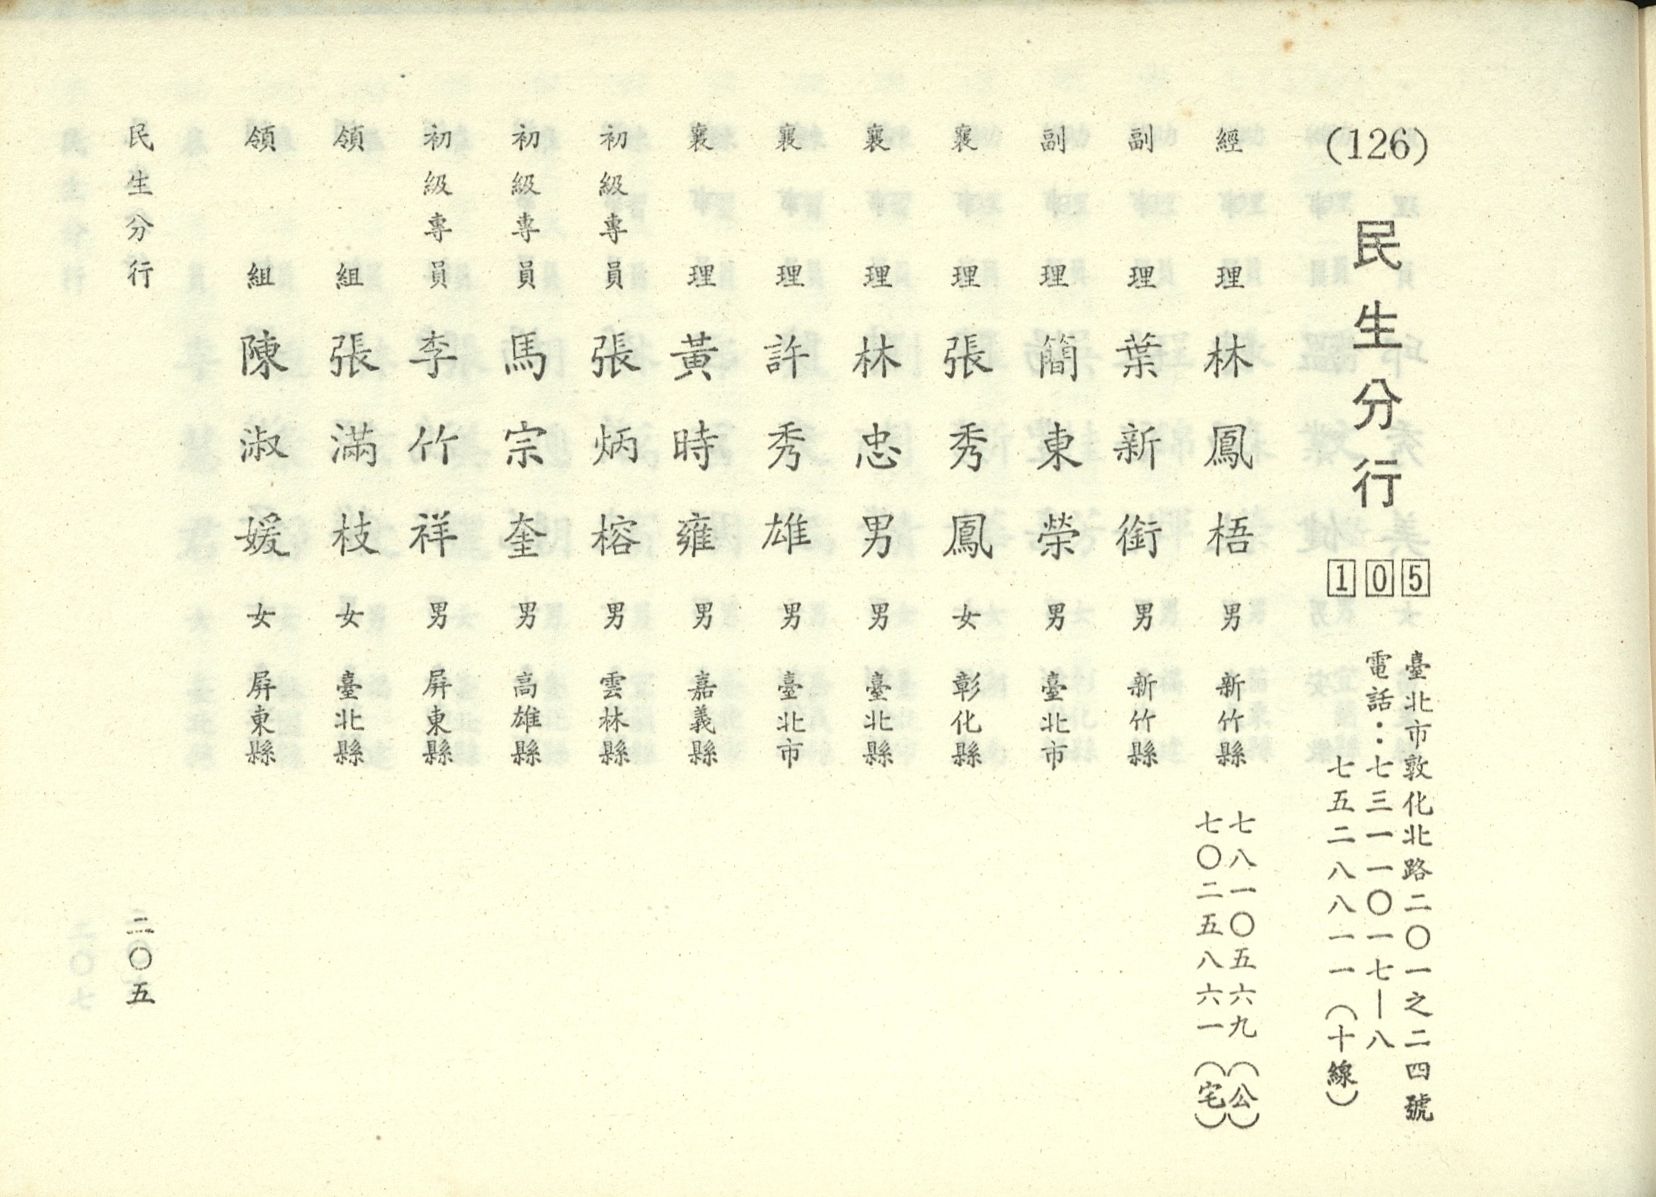 (126)
民生分行
105
臺北市敦化北路二〇一之二四號
電話：七三一一〇一七—八
七五二八八一一（十線）
經理 林鳳梧 男 新竹縣
七八一〇五六九（公）
七〇二五八六一（宅）
副理 葉新銜 男 新竹縣
副理 簡東榮 男 臺北市
襄理 張秀鳳 女 彰化縣
襄理 林忠男 男 臺北縣
襄理 許秀雄 男 臺北市
襄理 黃時雍 男 嘉義縣
初級專員 張炳榕 男 雲林縣
初級專員 馬宗奎 男 高雄縣
初級專員 李竹祥 男 屏東縣
領組 張滿枝 女 臺北縣
領組 陳淑媛 女 屏東縣
民生分行
二〇五